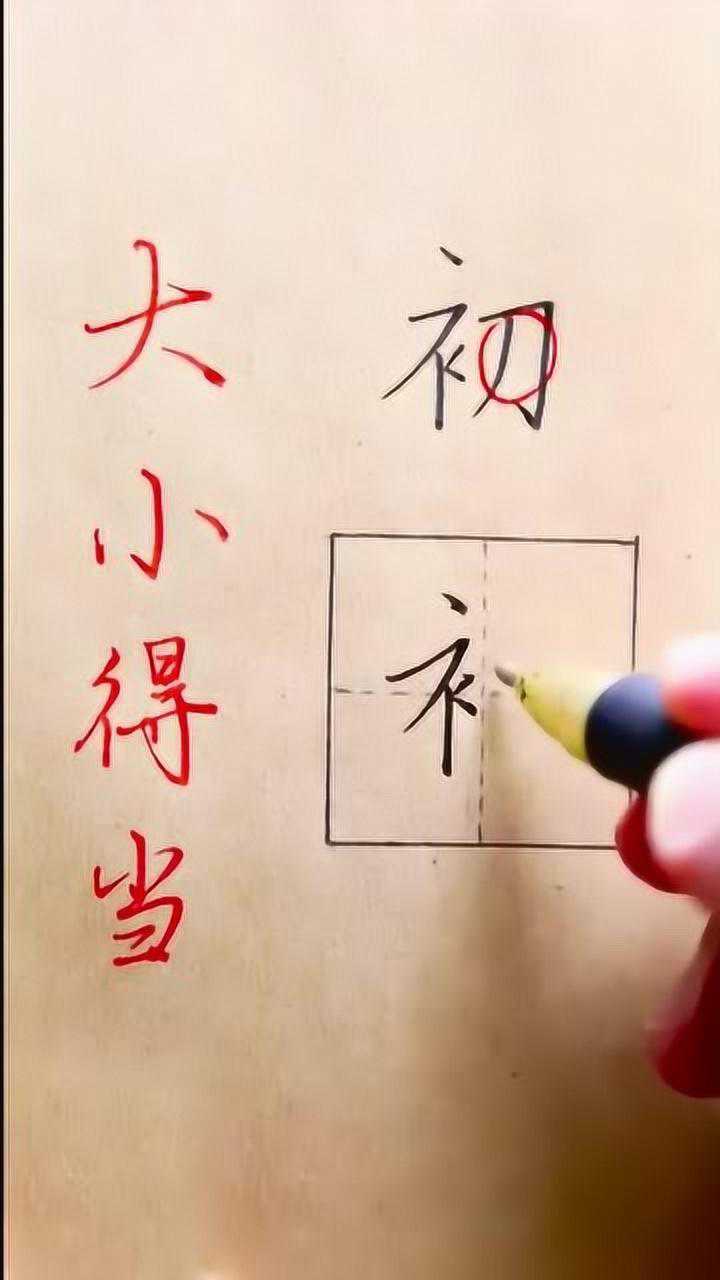 大小得当
初
衤